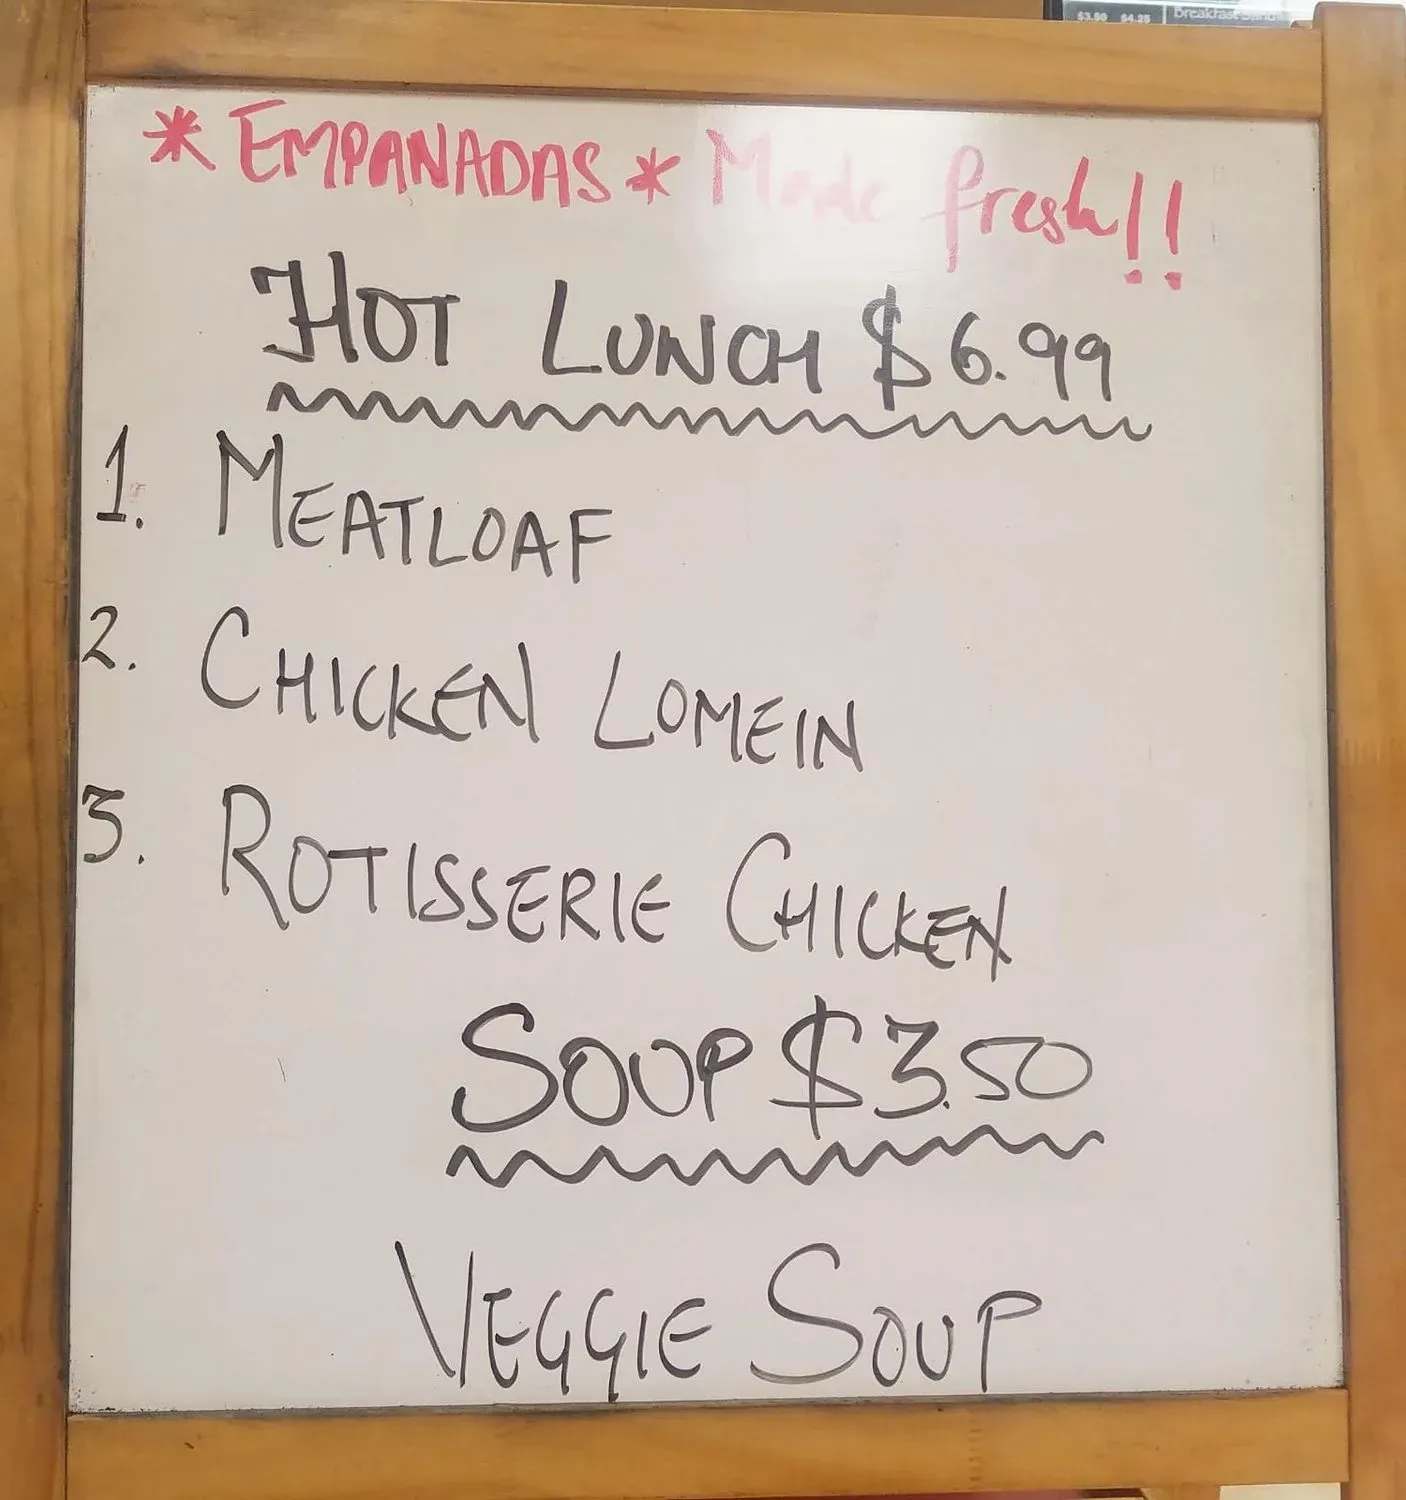 $3.50 $4.25 Breakfast Sand
* EMPANADAS * Made fresh!!
HOT LUNCH $6.99
1. MEATLOAF
2. CHICKEN LOMEIN
3. ROTISSERIE CHICKEN
SOUP $3.50
VEGGIE SOUP